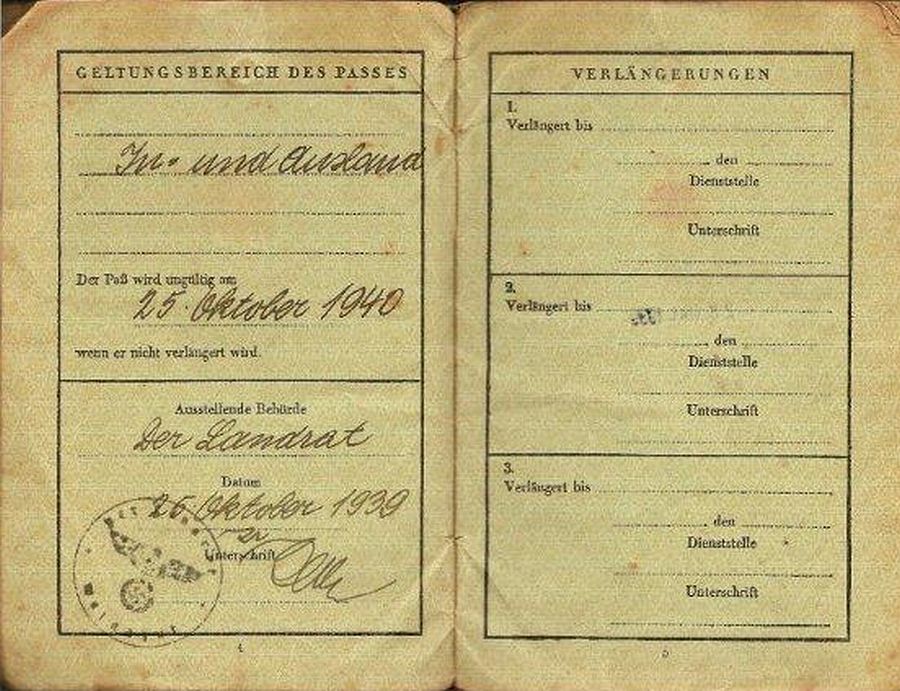 GELTUNGSBEREICH DES PASSES
In- und Ausland
Der Paß wird ungültig am
25. Oktober 1940
wenn er nicht verlängert wird.
Ausstellende Behörde
Der Landrat
Datum
26 Oktober 1939
Unterschrift
4
VERLÄNGERUNGEN
1.
Verlängert bis
den
Dienststelle
Unterschrift
2.
Verlängert bis
den
Dienststelle
Unterschrift
3.
Verlängert bis
den
Dienststelle
Unterschrift
5